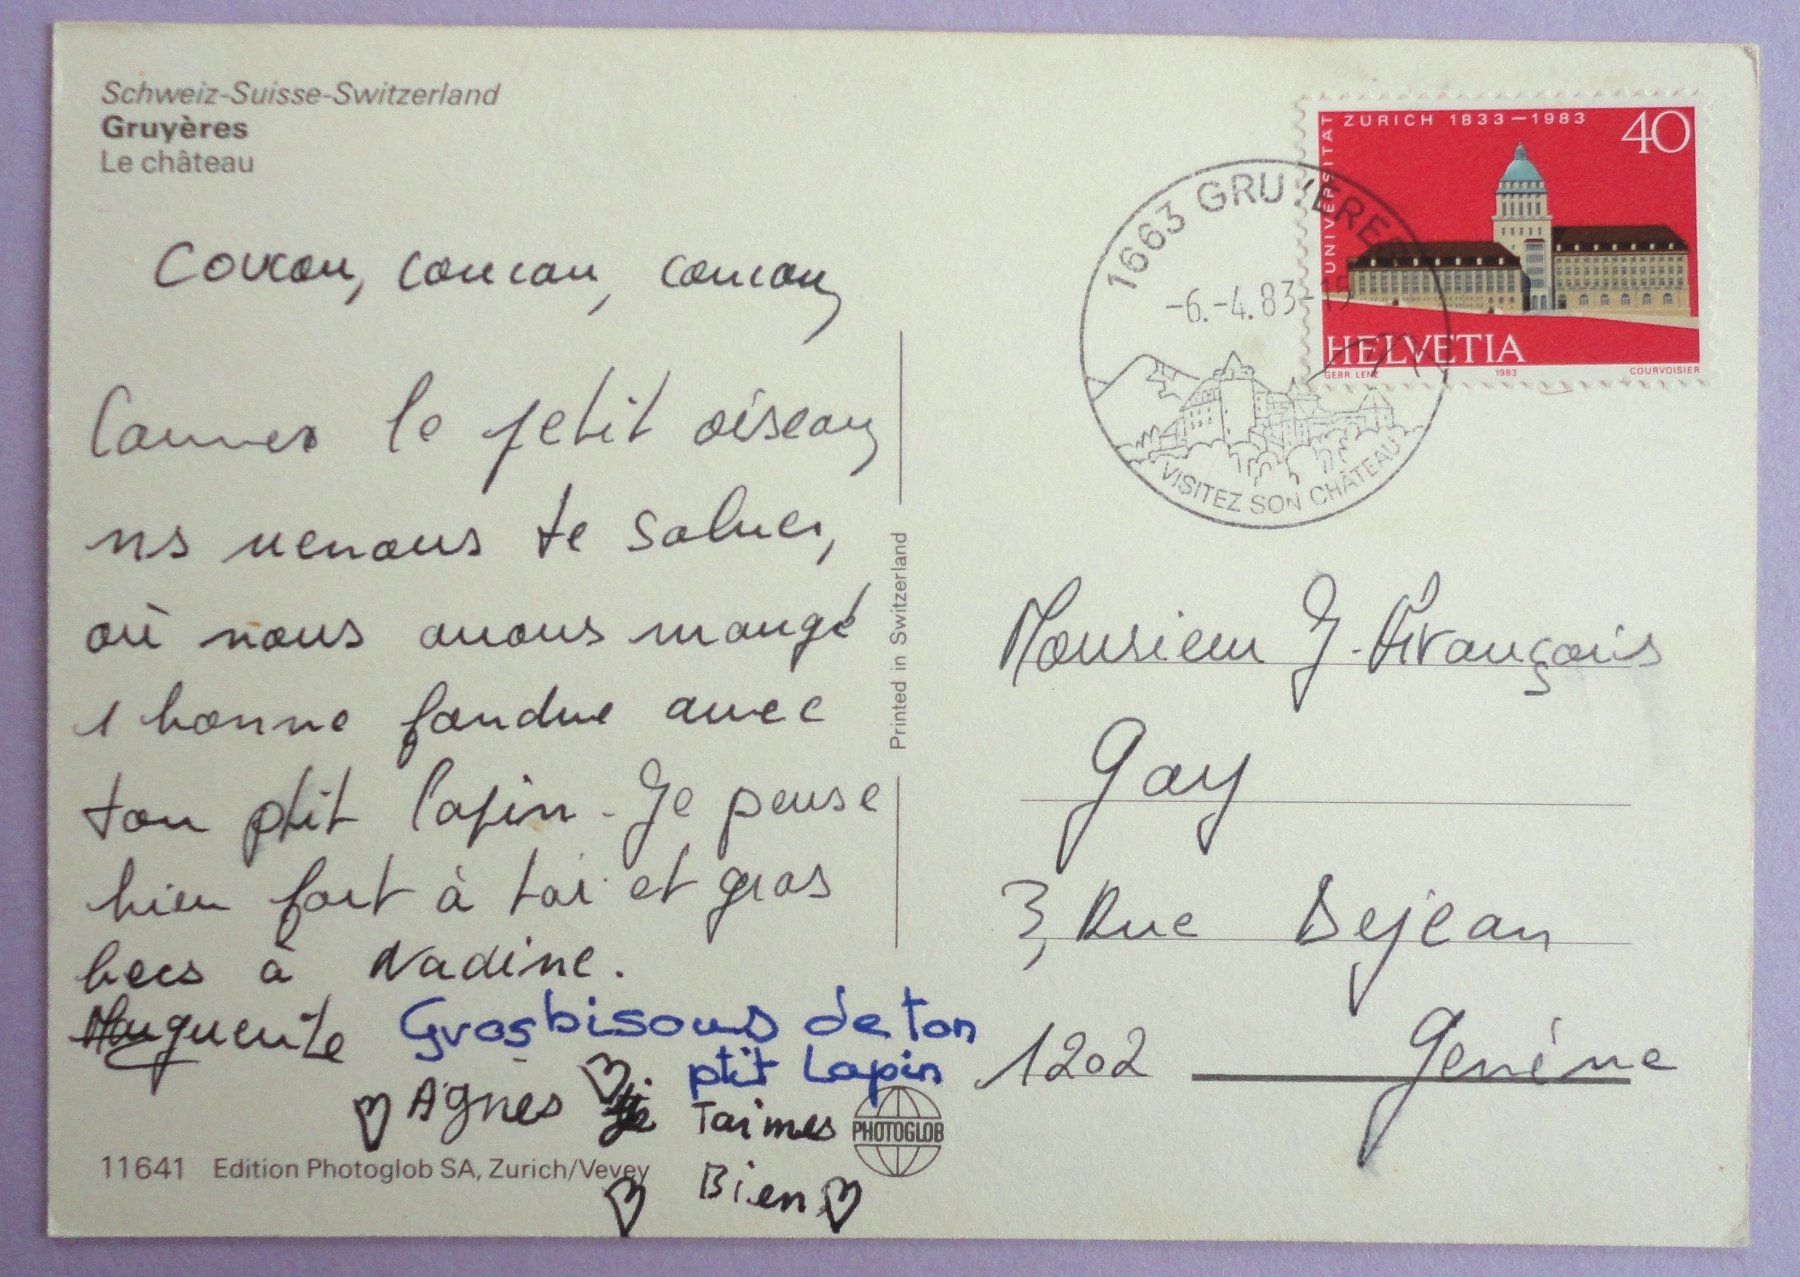 Schweiz-Suisse-Switzerland
Gruyères
Le château
Coucou, coucou, coucou,
Comme le petit oiseau,
ns venons te saluer,
où nous avons mangé
1 bonne fondue avec
ton ptit lapin. Je pense
bien fort à toi et gros
becs à Nadine.
Muguette
Gros bisous de ton
ptit Lapin
Agnès
je Taimes
Bien
11641 Edition Photoglob SA, Zurich/Vevey
PHOTOGLOB
Printed in Switzerland
1663 GRUYERES
-6.-4.83-15
VISITEZ SON CHÂTEAU
UNIVERSITÄT ZÜRICH 1833–1983
40
HELVETIA
GEBR. LENZ 1983 COURVOISIER
Monsieur J. François
Gay
3, Rue Dejean
1202 Genève